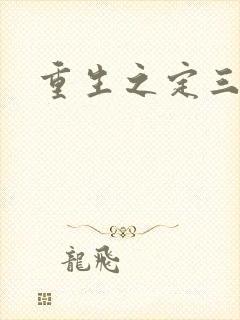 重生之定三
龍飛